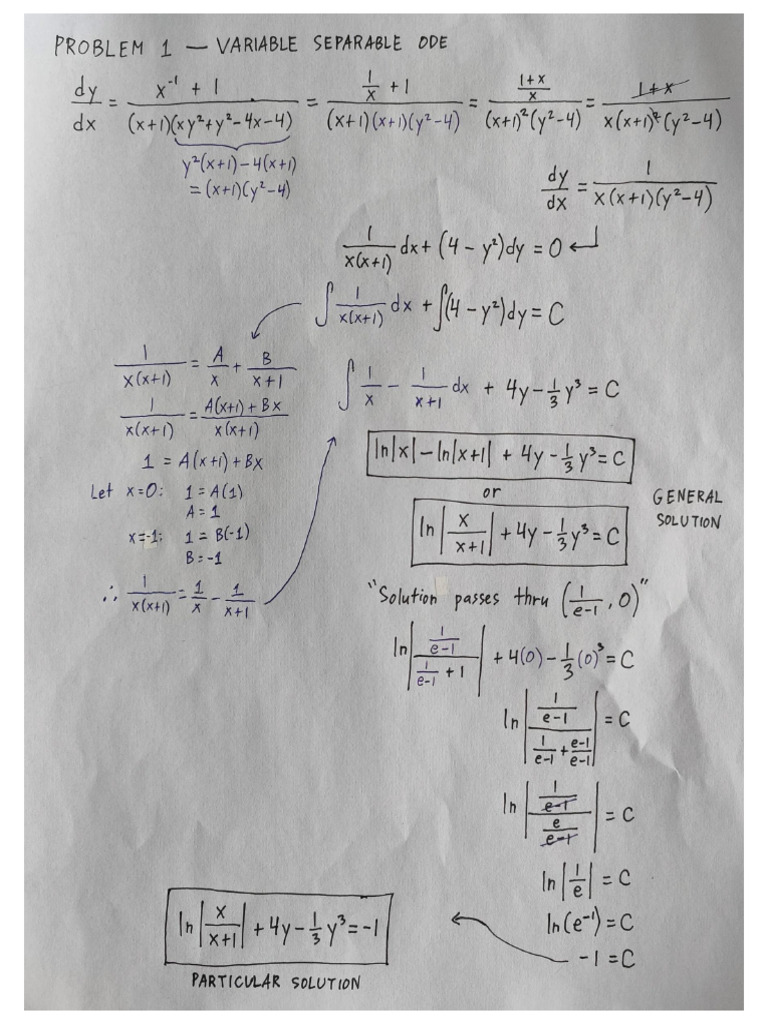 PROBLEM 1 — VARIABLE SEPARABLE ODE
dy/dx = (x⁻¹ + 1)/((x+1)(xy²+y²-4x-4)) = (1/x + 1)/((x+1)(x+1)(y²-4)) = ((1+x)/x)/((x+1)²(y²-4)) = (1+x)/(x(x+1)²(y²-4))
y²(x+1)-4(x+1)
= (x+1)(y²-4)
dy/dx = 1/(x(x+1)(y²-4))
1/(x(x+1)) dx + (4-y²)dy = 0 ↵
∫ 1/(x(x+1)) dx + ∫(4-y²)dy = C
1/(x(x+1)) = A/x + B/(x+1)
1/(x(x+1)) = (A(x+1)+Bx)/(x(x+1))
1 = A(x+1)+Bx
Let x=0: 1=A(1)
A=1
x=-1: 1=B(-1)
B=-1
∴ 1/(x(x+1)) = 1/x - 1/(x+1)
∫ 1/x - 1/(x+1) dx + 4y - 1/3 y³ = C
ln|x| - ln|x+1| + 4y - 1/3 y³ = C
or
ln|x/(x+1)| + 4y - 1/3 y³ = C
GENERAL
SOLUTION
"Solution passes thru (1/(e-1), 0)"
ln|(1/(e-1))/(1/(e-1) + 1)| + 4(0) - 1/3 (0)³ = C
ln|(1/(e-1))/(1/(e-1) + (e-1)/(e-1))| = C
ln|(1/(e-1))/(e/(e-1))| = C
ln|1/e| = C
ln(e⁻¹) = C
-1 = C
ln|x/(x+1)| + 4y - 1/3 y³ = -1
PARTICULAR SOLUTION